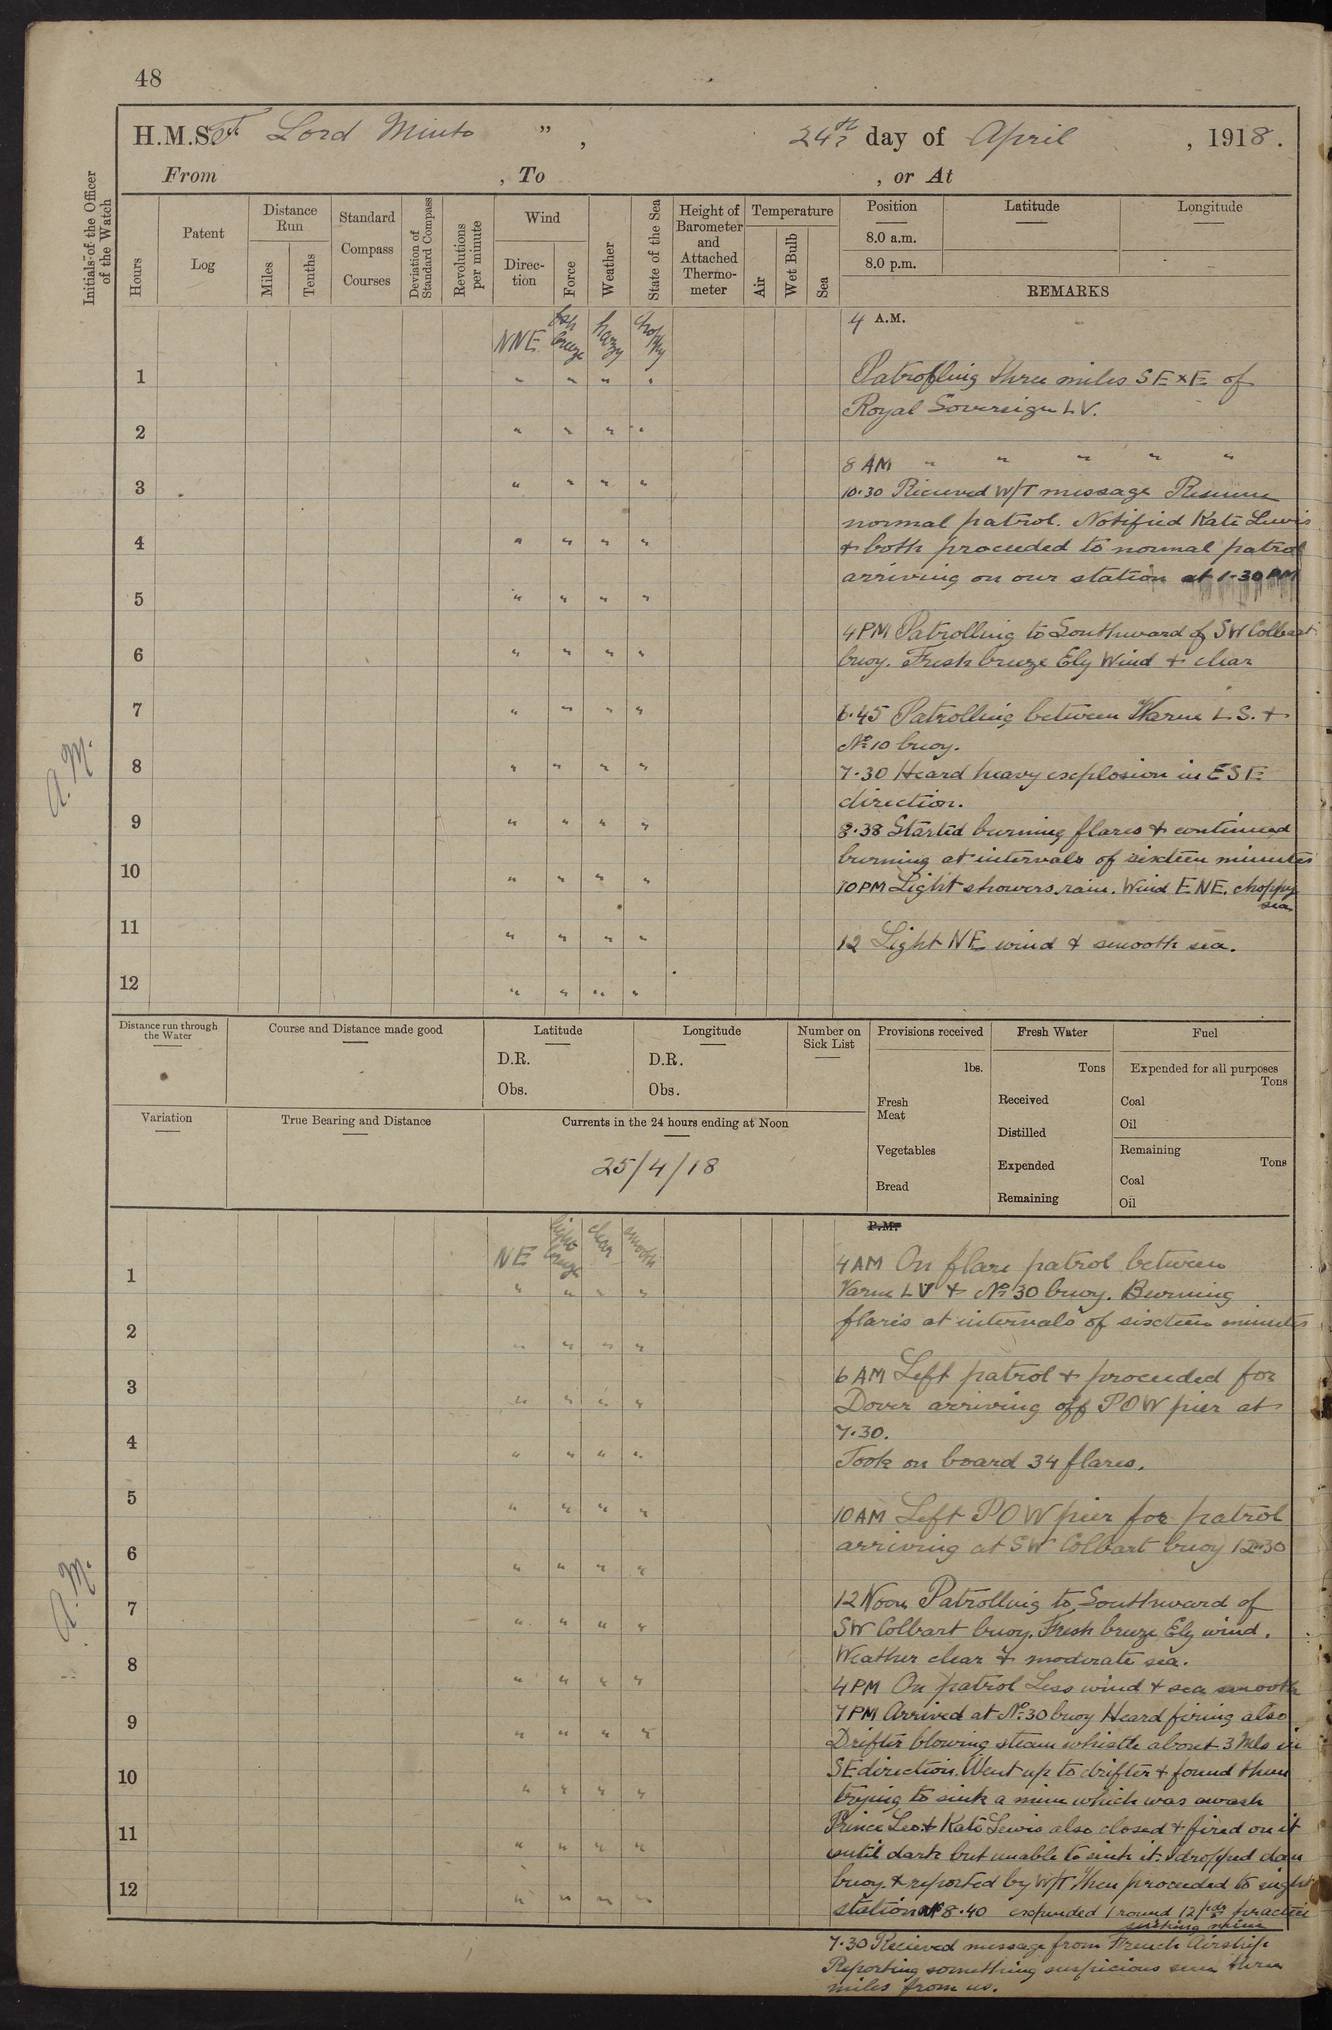 48
H.M.S. T. Lord Minto " , 24th day of April , 1918.
From , To , or At
Initials of the Officer of the Watch
Hours
Patent Log
Distance Run
Miles
Tenths
Standard Compass Courses
Deviation of Standard Compass
Revolutions per minute
Wind
Direction
Force
Weather
State of the Sea
Height of Barometer and Attached Thermometer
Temperature
Air
Wet Bulb
Sea
Position
8.0 a.m.
8.0 p.m.
Latitude
Longitude
REMARKS
NNE fsh breeze hazy choppy
4 A.M.
1 " " " "
Patrolling three miles SE x E of
Royal Sovereign LV.
2 " " " "
8 AM " " " " "
3 " " " "
10.30 Recieved W/T message Resume
normal patrol. Notified Kate Lewis
4 " " " "
& both proceeded to normal patrol
arriving on our station at 1-30 PM
5 " " " "
4 PM Patrolling to Southward of SW Colbart
6 " " " "
buoy. Fresh breeze Ely Wind & clear
7 " " " "
6.45 Patrolling between Varne L.S. &
No 10 buoy.
8 " " " "
7.30 Heard heavy explosion in ESE
direction.
9 " " " "
8.38 Started burning flares & continued
burning at intervals of sixteen minutes
10 " " " "
10 PM Light showers rain. Wind ENE. choppy
sea
11 " " " "
12 Light NE wind & smooth sea.
12 " " " "
A.M.
Distance run through the Water
Course and Distance made good
Latitude
D.R.
Obs.
Longitude
D.R.
Obs.
Number on Sick List
Provisions received
lbs.
Fresh Meat
Vegetables
Bread
Fresh Water
Tons
Received
Distilled
Expended
Remaining
Fuel
Expended for all purposes
Tons
Coal
Oil
Remaining
Tons
Coal
Oil
Variation
True Bearing and Distance
Currents in the 24 hours ending at Noon
25/4/18
P.M.
NE light breeze clear smooth
4 AM On flare patrol between
1 " " " "
Varne LV & No 30 buoy. Burning
flares at intervals of sixteen minutes
2 " " " "
6 AM Left patrol & proceeded for
3 " " " "
Dover arriving off POW pier at
7.30.
4 " " " "
Took on board 34 flares.
5 " " " "
10 AM Left POW pier for patrol
arriving at SW Colbart buoy 12-30
6 " " " "
12 Noon Patrolling to Southward of
7 " " " "
SW Colbart buoy. Fresh breeze Ely wind.
Weather clear & moderate sea.
8 " " " "
4 PM On patrol Less wind & sea smooth
7 PM Arrived at No 30 buoy Heard firing also
9 " " " "
Drifter blowing steam whistle about 3 Mls in
SE direction. Went up to drifter & found them
10 " " " "
trying to sink a mine which was awash
Prince Leo & Kate Lewis also closed & fired on it
11 " " " "
until dark but unable to sink it. I dropped dan
buoy. & reported by W/T then proceeded to night
12 " " " "
station at 8.40 expended 1 round 12 pdr practice
sinking mine
7.30 Recieved message from French Airship
Reporting something suspicious seen three
miles from us.
A.M.